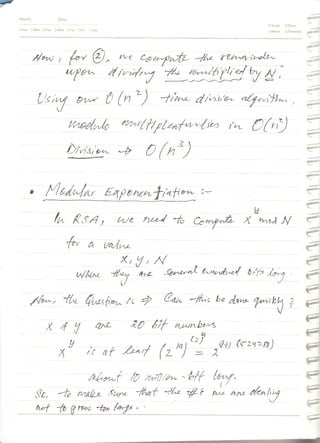 Now, for ②, we compute the remainder
upon dividing the multiplied by N.
Using our O(n²) time division algorithm,
modulo multiplication in O(n²)
Division → O(n³)
• Modular Exponentiation :-
In RSA, we need to compute x^y mod N
for a value
x, y, N
where they are several hundred bits long.
Now, the Question is ⇒ Can this be done quickly ?
x & y are 20 bit numbers
x^y is at least (2^19)^(2^19) = 2^(19)(524288)
about 10 million - bit long.
So, to make sure that the #s we are dealing
not to grow too large.